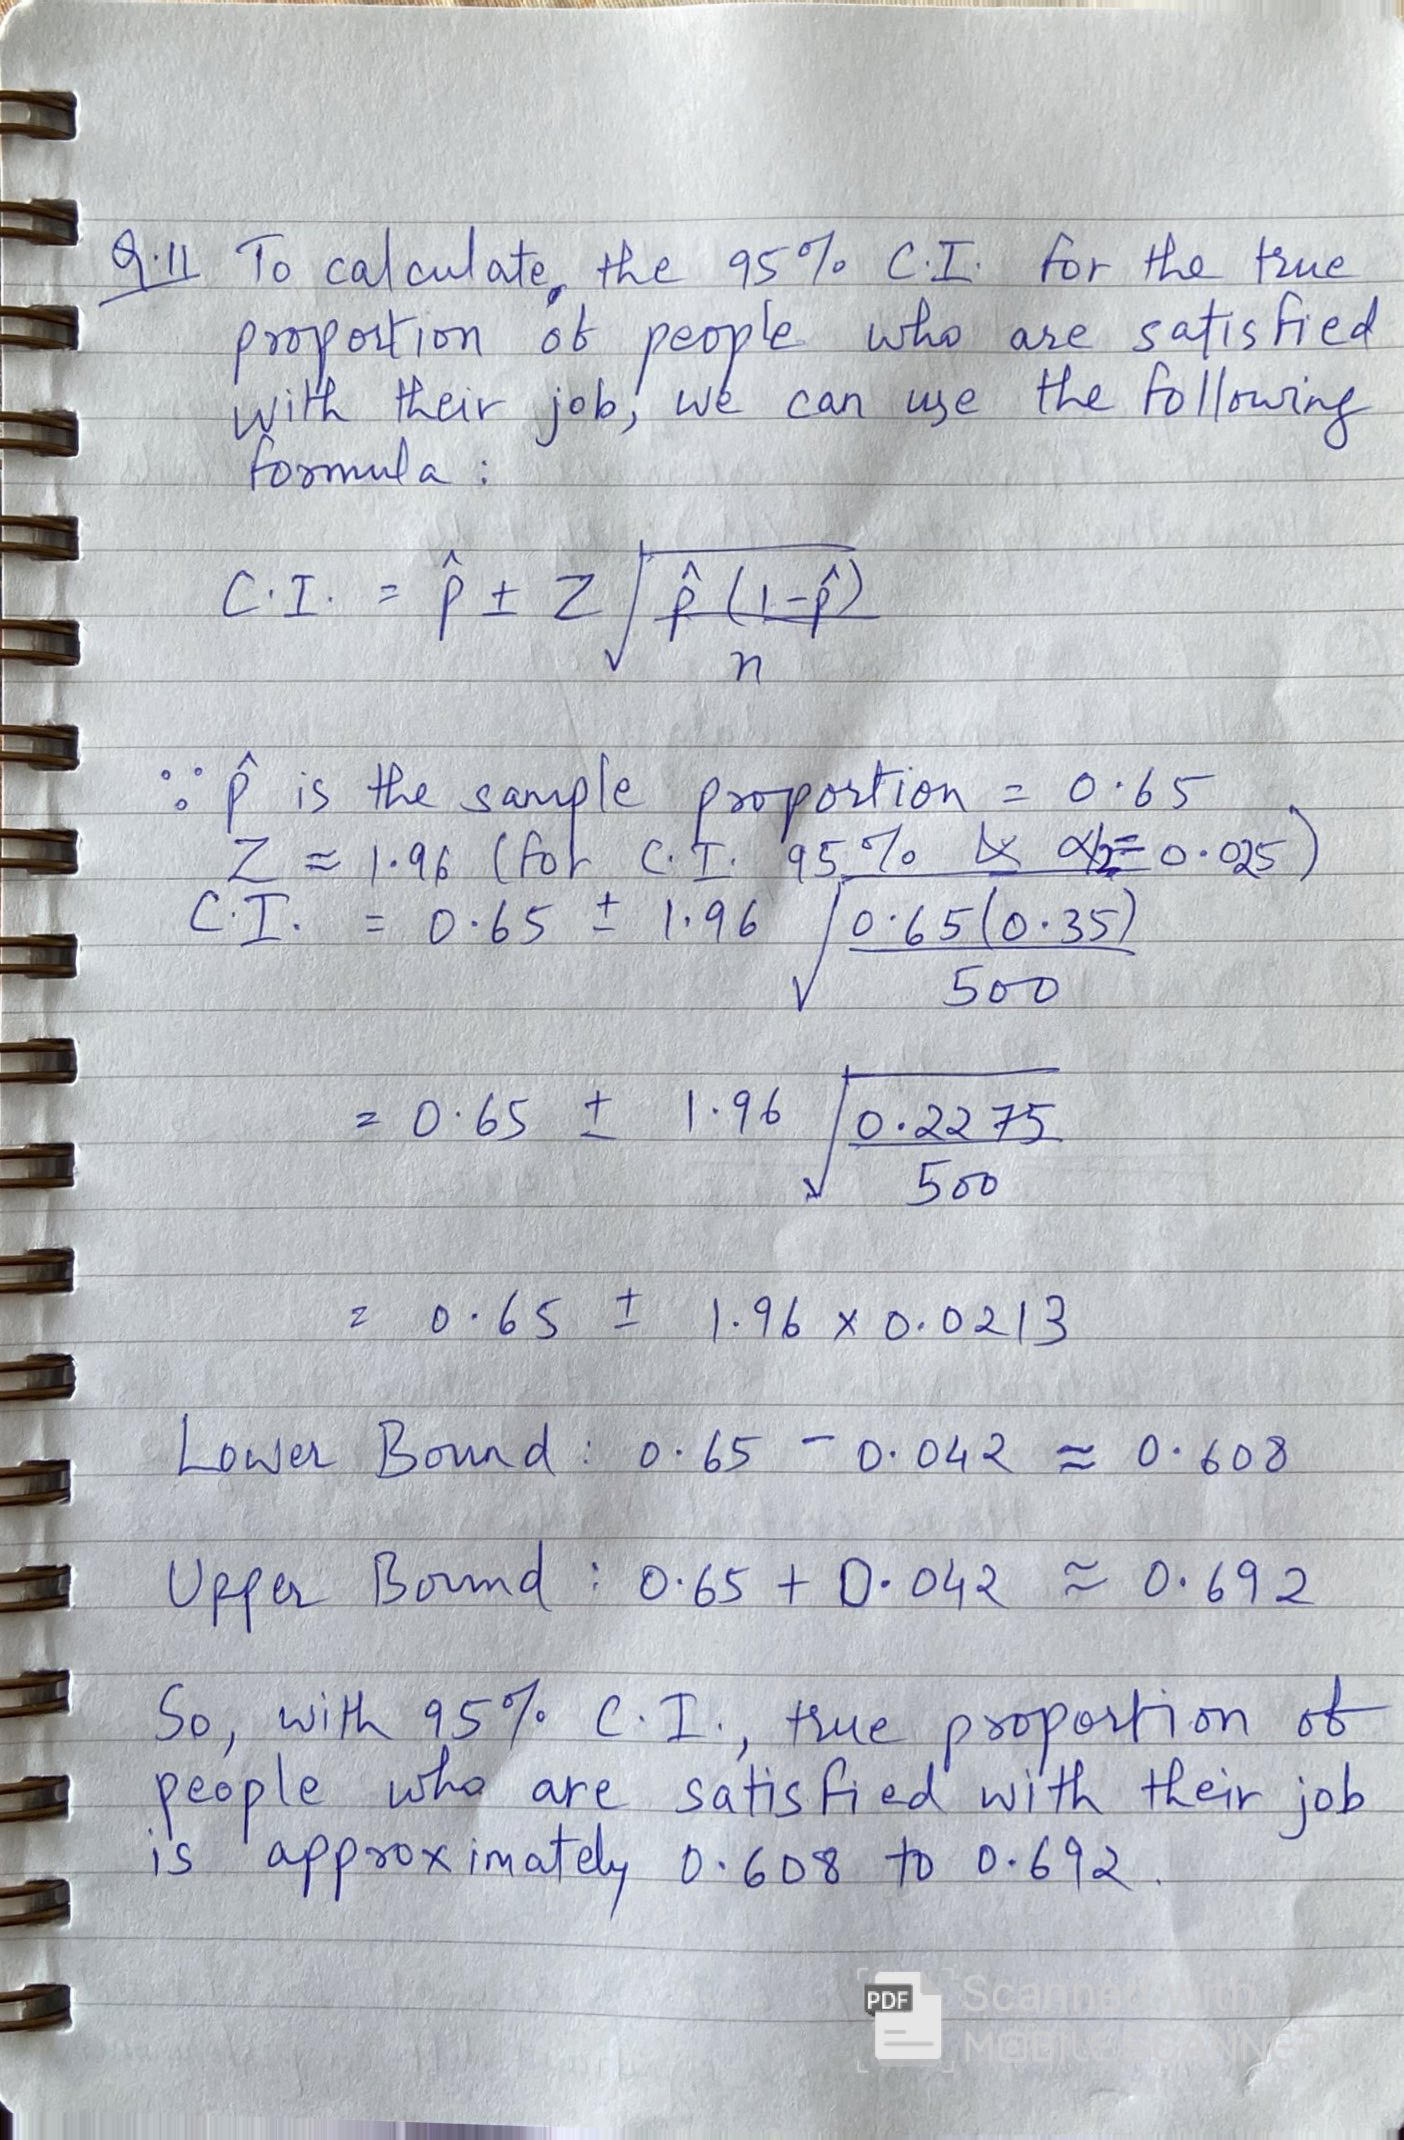 Q.11 To calculate, the 95% C.I. for the true
proportion of people who are satisfied
with their job, we can use the following
formula :
C.I. = p̂ ± Z √(p̂ (1-p̂) / n)
∵ p̂ is the sample proportion = 0.65
Z ≈ 1.96 (for C.I. 95% & α/2 = 0.025)
C.I. = 0.65 ± 1.96 √(0.65(0.35) / 500)
= 0.65 ± 1.96 √(0.2275 / 500)
= 0.65 ± 1.96 × 0.0213
Lower Bound : 0.65 - 0.042 ≈ 0.608
Upper Bound : 0.65 + 0.042 ≈ 0.692
So, with 95% C.I., true proportion of
people who are satisfied with their job
is approximately 0.608 to 0.692.
PDF Scanned with
MOBILE SCANNER